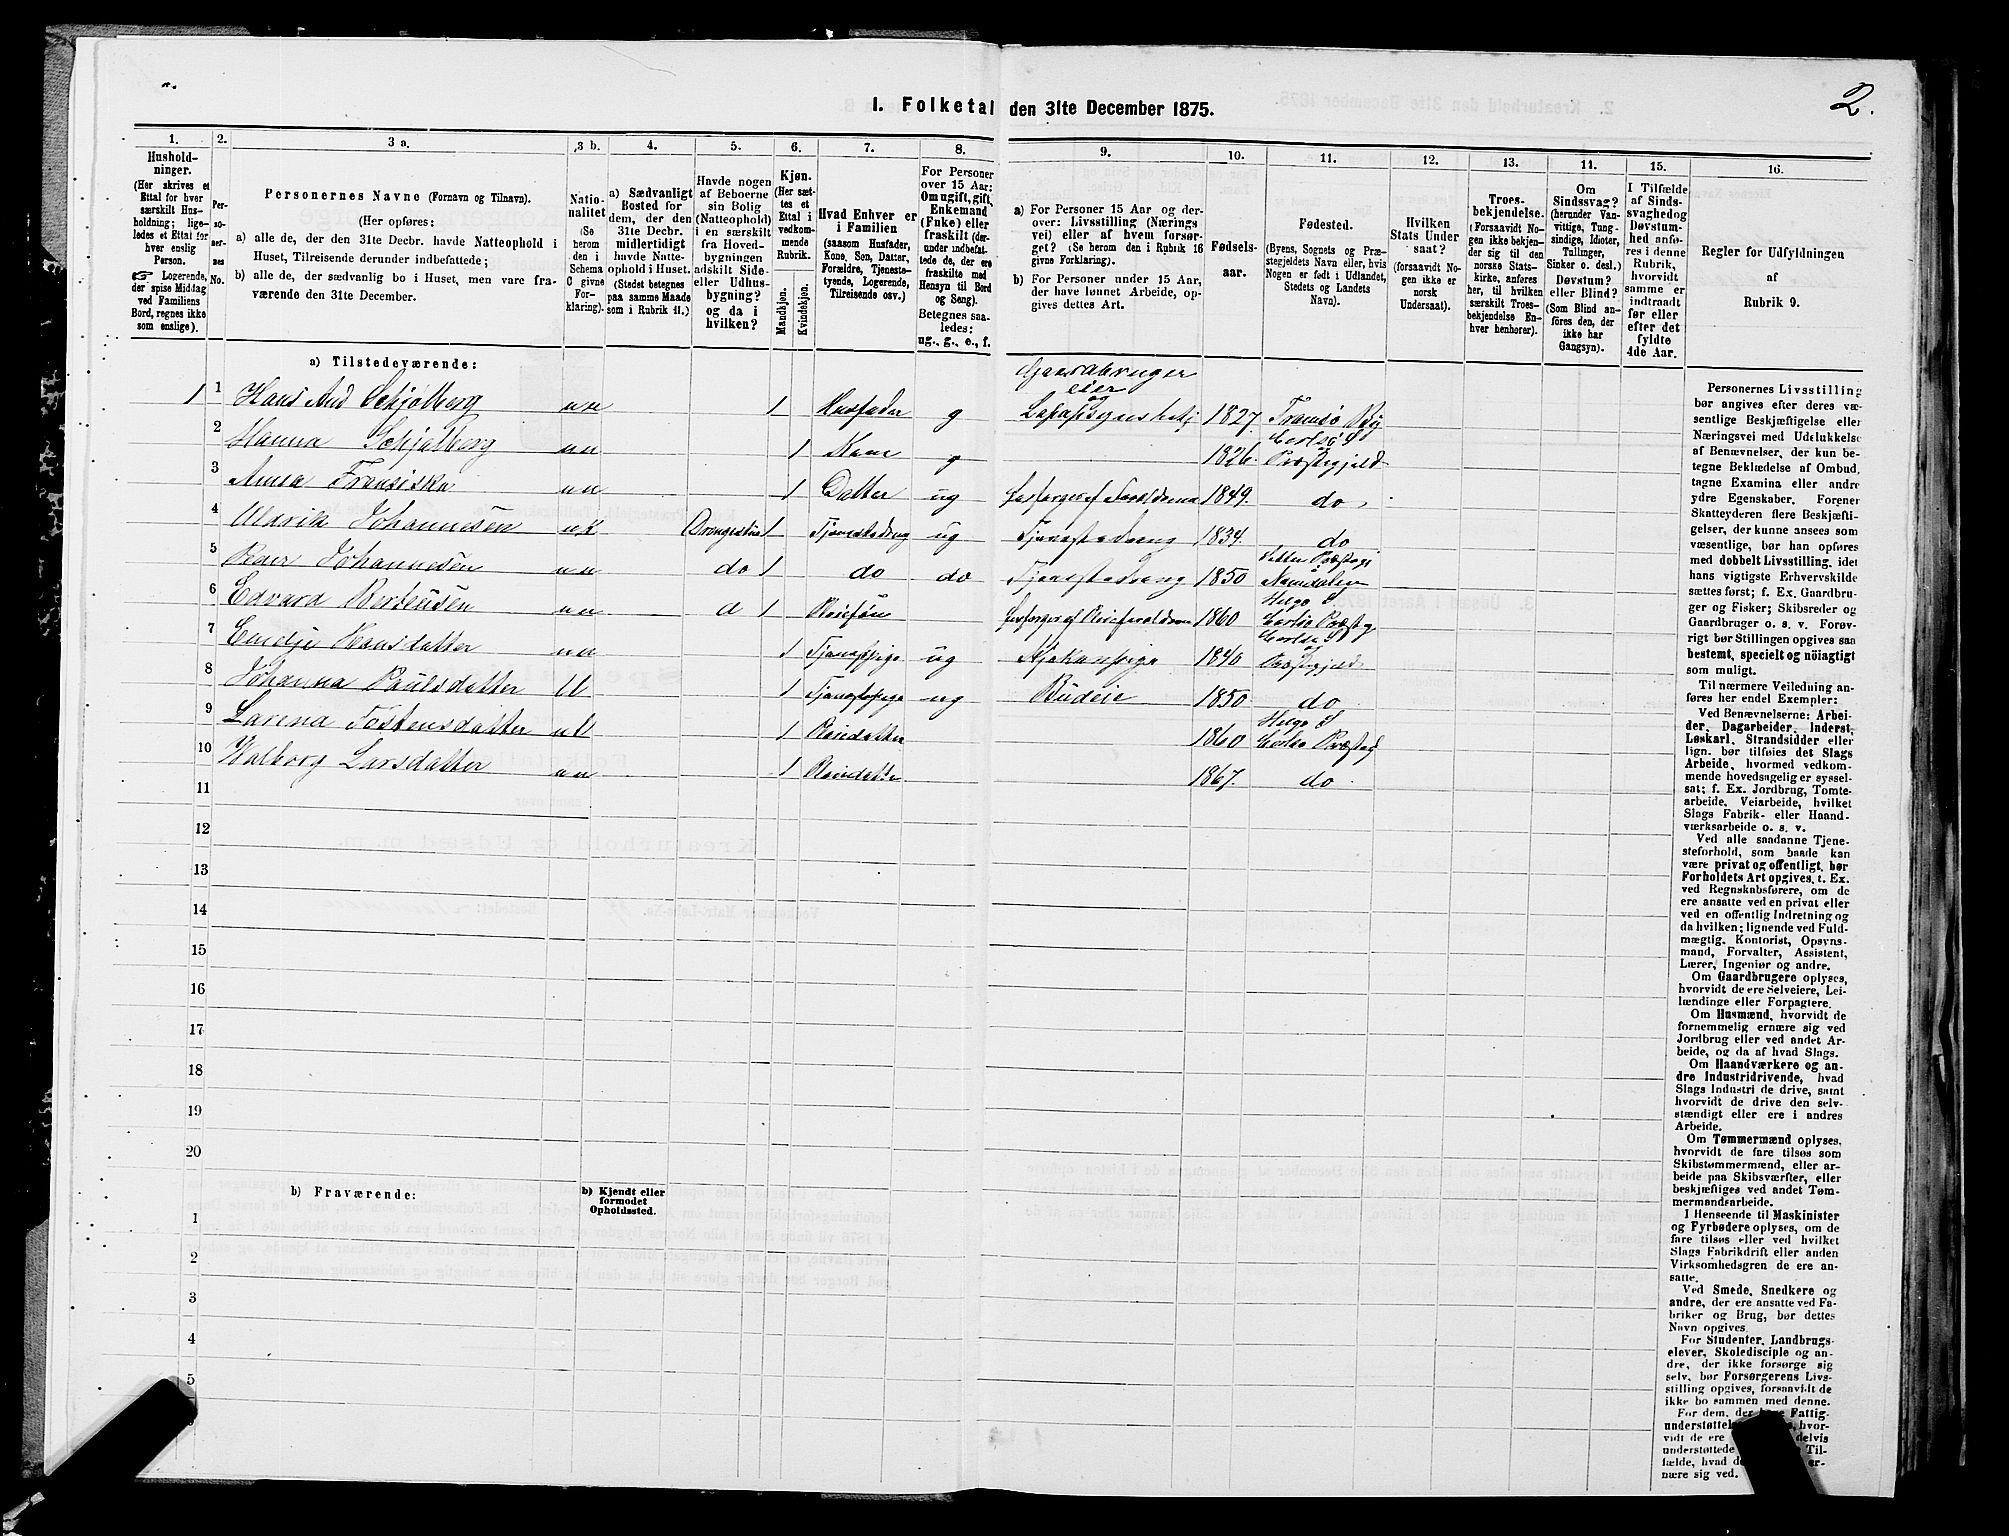 2.
I. Folketal den 31te December 1875.
1.
Hushold-
ninger.
(Her skrives et
Ettal for hver
særskilt Hus-
holdning; lige-
ledes et Ettal for
hver enslig
Person.
☞ Logerende,
der spise Middag
ved Familiens
Bord, regnes ikke
som enslige).
2.
Per-
so-
ner-
nes
No.
3 a.
Personernes Navne (Fornavn og Tilnavn).
(Her opføres:
a) alle de, der den 31te Decbr. havde Natteophold i
Huset, Tilreisende derunder indbefattede;
b) alle de, der sædvanlig bo i Huset, men vare fra-
værende den 31te December.
3 b.
Natio-
nalitet
(Se
herom
den i
Schema
C givne
For-
klaring).
4.
a) Sædvanligt
Bosted for
dem, der den
31te Decbr.
midlertidigt
havde Natte-
ophold i Huset.
(Stedet betegnes
paa samme Maade
som i Rubrik 11.)
5.
Havde nogen
af Beboerne
sin Bolig
(Natteophold)
i en særskilt
fra Hoved-
bygningen
adskilt Side-
eller Udhus-
bygning?
og da i
hvilken?
6.
Kjøn.
(Her sæt-
tes et
Ettal i
vedkom-
mende
Rubrik.
Mandkjøn.
Kvindekjøn.
7.
Hvad Enhver er
i Familien
(saasom Husfader,
Kone, Søn, Datter,
Forældre, Tjeneste-
tyende, Logerende,
Tilreisende osv.)
8.
For Personer
over 15 Aar:
Om ugift, gift,
Enkemand
(Enke) eller
fraskilt (der-
under indbefat-
tede de, der ere
fraskilte med
Hensyn til Bord
og Seng).
Betegnes saa-
ledes:
ug., g., e., f.
9.
a) For Personer 15 Aar og der-
over: Livsstilling (Nærings
vei) eller af hvem forsør-
get? (Se herom den i Rubrik 16
givne Forklaring).
b) For Personer under 15 Aar,
der have lønnet Arbeide, op-
gives dettes Art.
10.
Fødsels-
aar.
11.
Fødested.
(Byens, Sognets og Præ-
stegjeldets Navn eller, hvis
Nogen er født i Udlandet,
Stedets og Landets
Navn).
12.
Hvilken
Stats Under
saat?
(forsaavidt No-
gen ikke er
norsk
Undersaat).
13.
Troes-
bekjendelse.
(Forsaavidt No
gen ikke bekjen-
der sig til den
norske Stats-
kirke, anføres
her, til hvilken
særskilt Troes-
bekjendelse En-
hver henhører).
14.
Om
Sindssvag?
(herunder Van-
vittige, Tung-
sindige, Idioter,
Tullinger,
Sinker o. desl.)
Døvstum?
eller Blind?
(Som Blind an-
føres den, der
ikke har
Gangsyn).
15.
I Tilfælde
af Sinds-
svaghed og
Døvstum-
hed anfø-
res i denne
Rubrik,
hvorvidt
samme er
indtraadt
før eller
efter det
fyldte
4de Aar.
16.
Regler for Udfyldningen
af
Rubrik 9.
a) Tilstedeværende:
Gaardbruger
eier
og
1 1 Hans And Schjølberg nn 1 Husfader g 1827. Tromsø By
2 Hanna Schjølberg nn 1 Kone g 1826. Carlsø S Præstegjeld
3 Anna Fransiska nn 1 Datter ug forsørges af Forældrene 1849. do
4 Aldrik Johannesen nk Drengestue 1 Tjenestedreng ug Tjenestedreng 1834. do
5 Peder Johannesen nn do 1 do do Tjenestedreng 1850 Præstegj Namdalen
6 Edvard Berteusen nn d 1 Pleiesøn forsørges af Pleieforældrene 1860 Helgø S Carlsø Præstg
7 Emelje Hansdatter nn 1 Tjenestpige ug Kjøkenpige 1840 Carlsø S og Præstegjeld
8 Johanna Paulsdatter ll 1 Tjenestepige ug Budeie 1850. do
9 Larina Tostensdatter nl 1 Pleiedatter 1860 Helgø S Carlsø Præsteg
10 Walborg Larsdatter nn 1 Pleiedatter 1867. do
11
12
13
14
15
16
17
18
19
20
b) Fraværende:
b) Kjendt eller
formodet
Opholdssted.
1
2
3
4
5
Personernes Livsstilling
bør angives efter deres væ-
sentlige Beskjæftigelse eller
Næringsvei med Udelukkelse
af Benævnelser, der kun be-
tegne Beklædelse af Ombud,
tagne Examina eller andre
ydre Egenskaber. Forener
Skatteyderen flere Beskjæfti-
gelser, der kunne ansees som
væsentlige, bør han opføres
med dobbelt Livsstilling, idet
hans vigtigste Erhvervskilde
sættes først; f. Ex. Gaardbru-
ger og Fisker; Skibsreder og
Gaardbruger o. s. v. Forøv-
rigt bør Stillingen opgives saa
bestemt, specielt og nöiagtigt
som muligt.
Til nærmere Veiledning an-
føres her endel Exempler:
Ved Benævnelserne: Arbei-
der, Dagarbeider, Inderst,
Løskarl, Strandsidder eller
lign. bør tilføies det Slags
Arbeide, hvormed vedkom-
mende hovedsagelig er syssel-
sat; f. Ex. Jordbrug, Tomte-
arbeide, Veiarbeide, hvilket
Slags Fabrik- eller Haand-
værksarbeide o. s. v.
Ved alle saadanne Tjene-
steforhold, som baade kan
være privat og offentligt, bør
Forholdets Art opgives, t. Ex.
ved Regnskabsførere, om de
ere ansatte ved en privat eller
ved en offentlig Indretning og
da hvilken; lignende ved Fuld-
mægtig, Kontorist, Opsyns-
mand, Forvalter, Assistent,
Lærer, Ingeniør og andre.
Om Gaardbrugere oplyses,
hvorvidt de ere Selveiere, Lei-
lændinge eller Forpagtere.
Om Husmænd, hvorvidt de
fornemmelig ernære sig ved
Jordbrug eller ved andet Ar-
beide, og da af hvad Slags.
Om Haandværkere og an-
dre Industridrivende, hvad
Slags Industri de drive, samt
hvorvidt de drive den selv-
stændigt eller ere i andres
Arbeide.
Om Tømmermænd oplyses,
hvorvidt de fare tilsøs som
Skibstømmermænd, eller ar-
beide paa Skibsværfter, eller
beskjæftiges ved andet Tøm-
mermandsarbeide.
I Henseende til Maskinister
og Fyrbødere oplyses, om de
fare tilsøs eller ved hvilket
Slags Fabrikdrift eller anden
Virksomhedsgren de ere an-
satte.
Ved Smede, Snedkere og
andre, der ere ansatte ved Fa-
briker og Brug, bør dettes
Navn opgives.
For Studenter, Landbrugs-
elever, Skoledisciple og an-
dre, der ikke forsørge sig
selv, bør Forsørgerens Livs-
stilling opgives, forsaavidt de
ikke bo sammen med denne.
For dem, der Fattig-
understøttel hvor-
vidt de ere delvis
understøttede Til-
fælde, hvad de er-
nære sig ved.